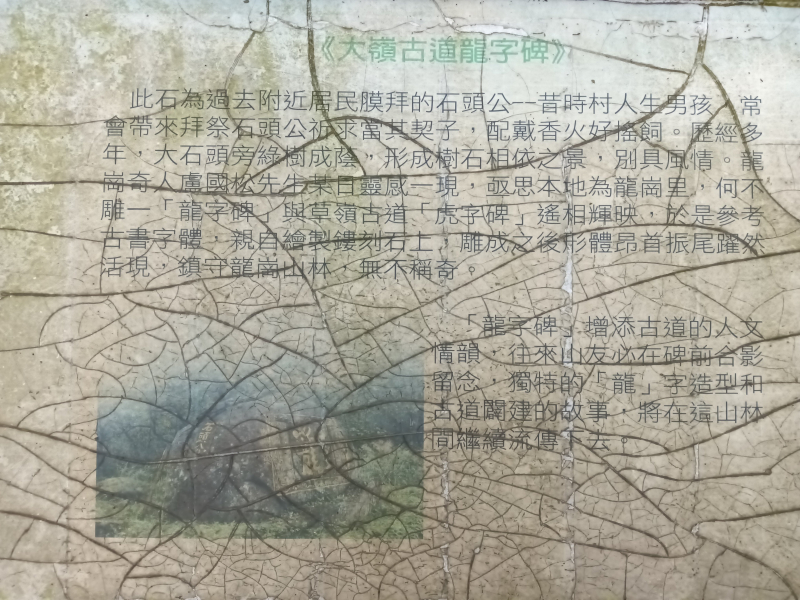 《大嶺古道龍字碑》
此石為過去附近居民膜拜的石頭公——昔時村人生男孩，常
會帶來拜祭石頭公祈求當其契子，配戴香火好搖飼。歷經多
年，大石頭旁綠樹成蔭，形成樹石相依之景，別具風情。龍
崗奇人盧國松先生某日靈感一現，亟思本地為龍崗里，何不
雕一「龍字碑」與草嶺古道「虎字碑」遙相輝映，於是參考
古書字體，親自繪製鏤刻石上，雕成之後形體昂首振尾躍然
活現，鎮守龍崗山林，無不稱奇。
「龍字碑」增添古道的人文
情韻，往來山友必在碑前合影
留念，獨特的「龍」字造型和
古道闢建的故事，將在這山林
間繼續流傳下去。